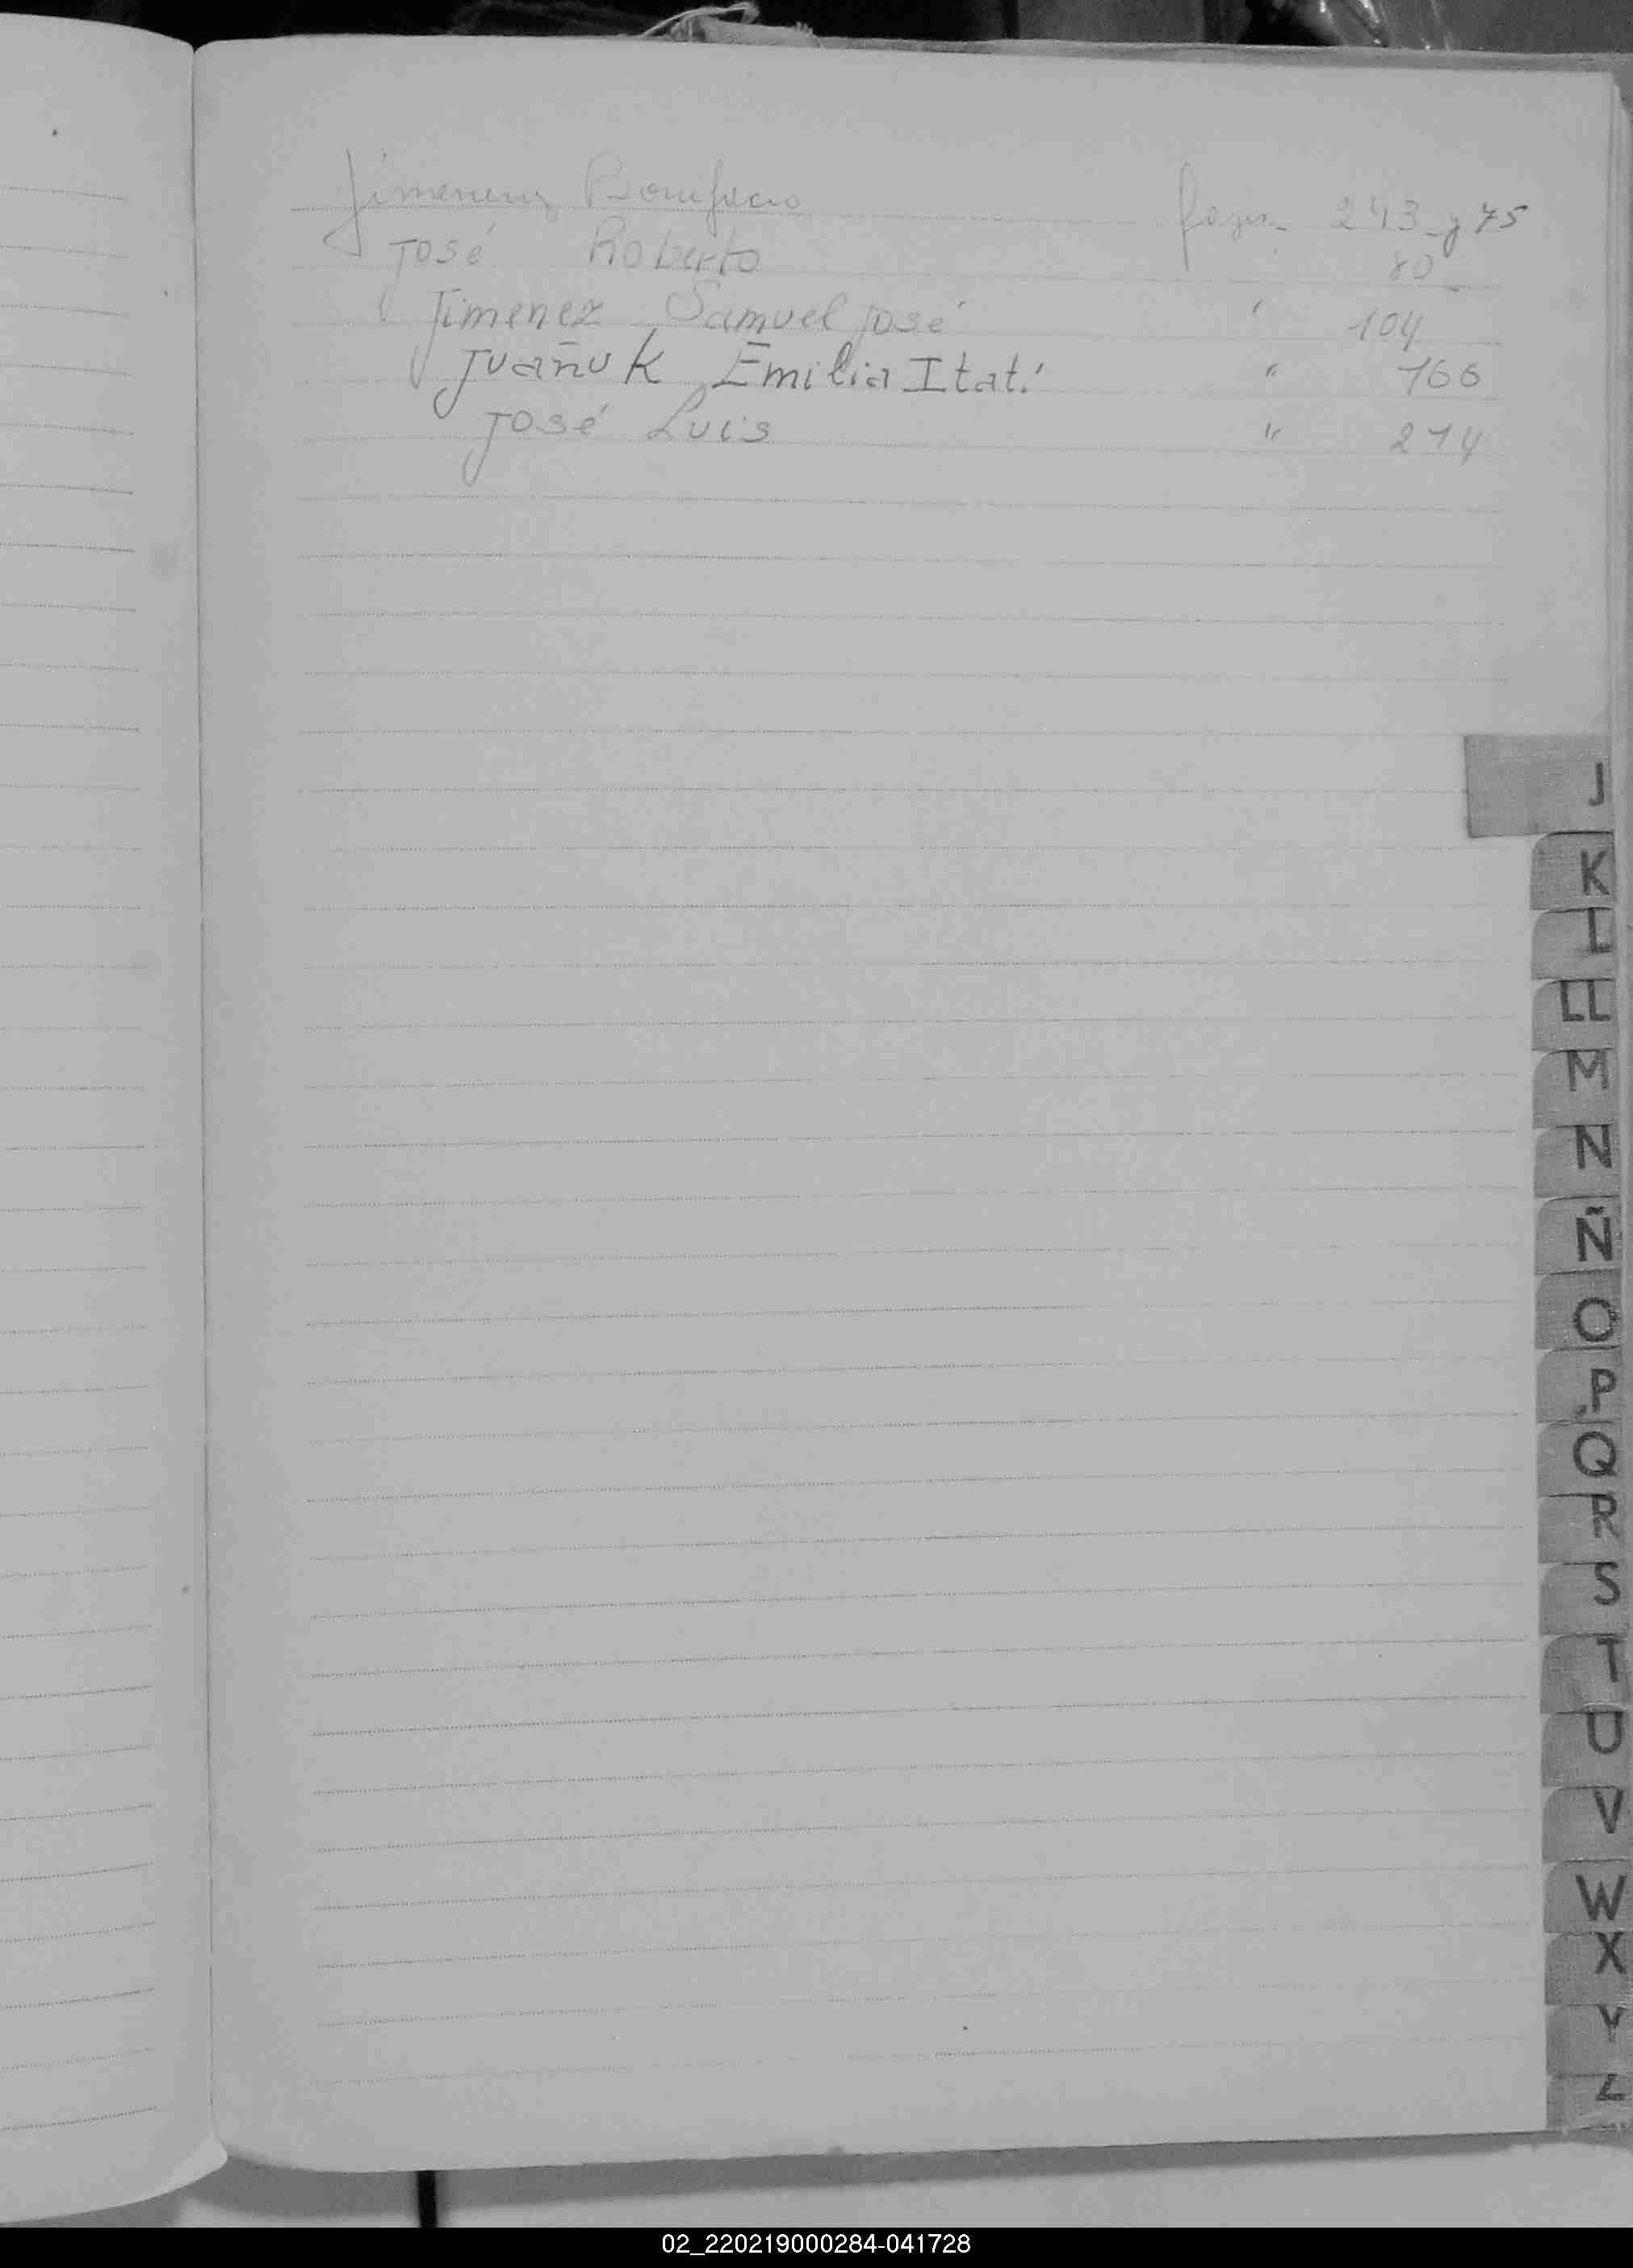 Jimenenz Bonifacio fojas. 243 y 75
José Roberto 80
Jimenez Samuel José " 104
Juañuk Emilia Itatí " 166
José Luis " 214
J
K
L
LL
M
N
Ñ
O
P
Q
R
S
T
U
V
W
X
Y
Z
02_220219000284-041728